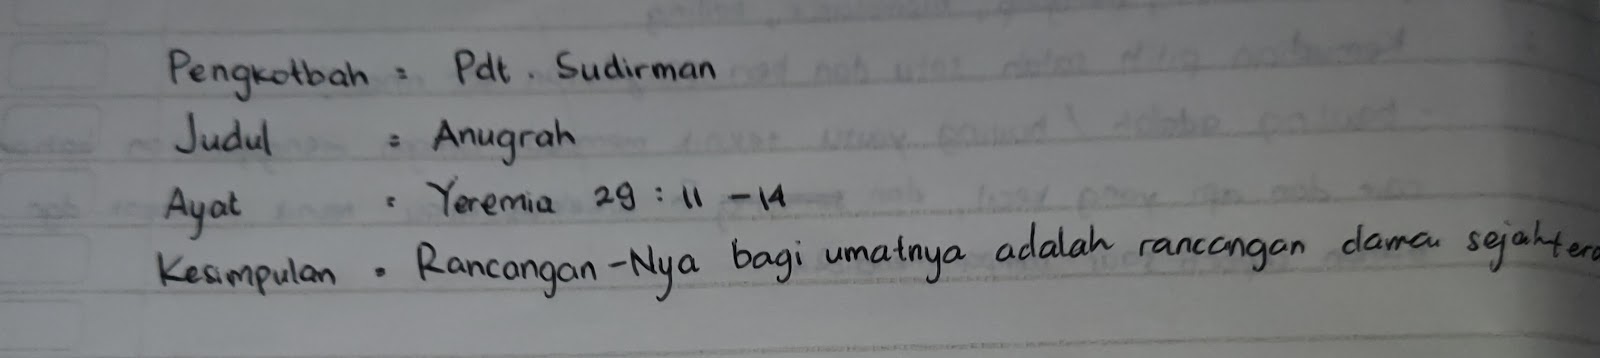 Pengkotbah : Pdt. Sudirman
Judul : Anugrah
Ayat : Yeremia 29 : 11 - 14
Kesimpulan : Rancangan-Nya bagi umatnya adalah rancangan damai sejahtera